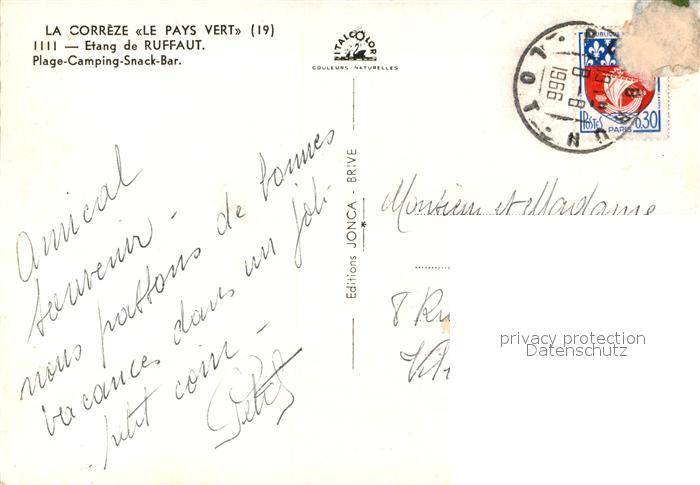 LA CORRÈZE «LE PAYS VERT» (19)
1111 — Etang de RUFFAUT.
Plage-Camping-Snack-Bar.
ITALCOLOR
COULEURS NATURELLES
Editions JONCA - BRIVE
Amical
Souvenir -
nous passons de bonnes
vacances dans un joli
petit coin -
Monsieur et Madame
8 Ru
1966
POSTES
0,30
PARIS
privacy protection
Datenschutz